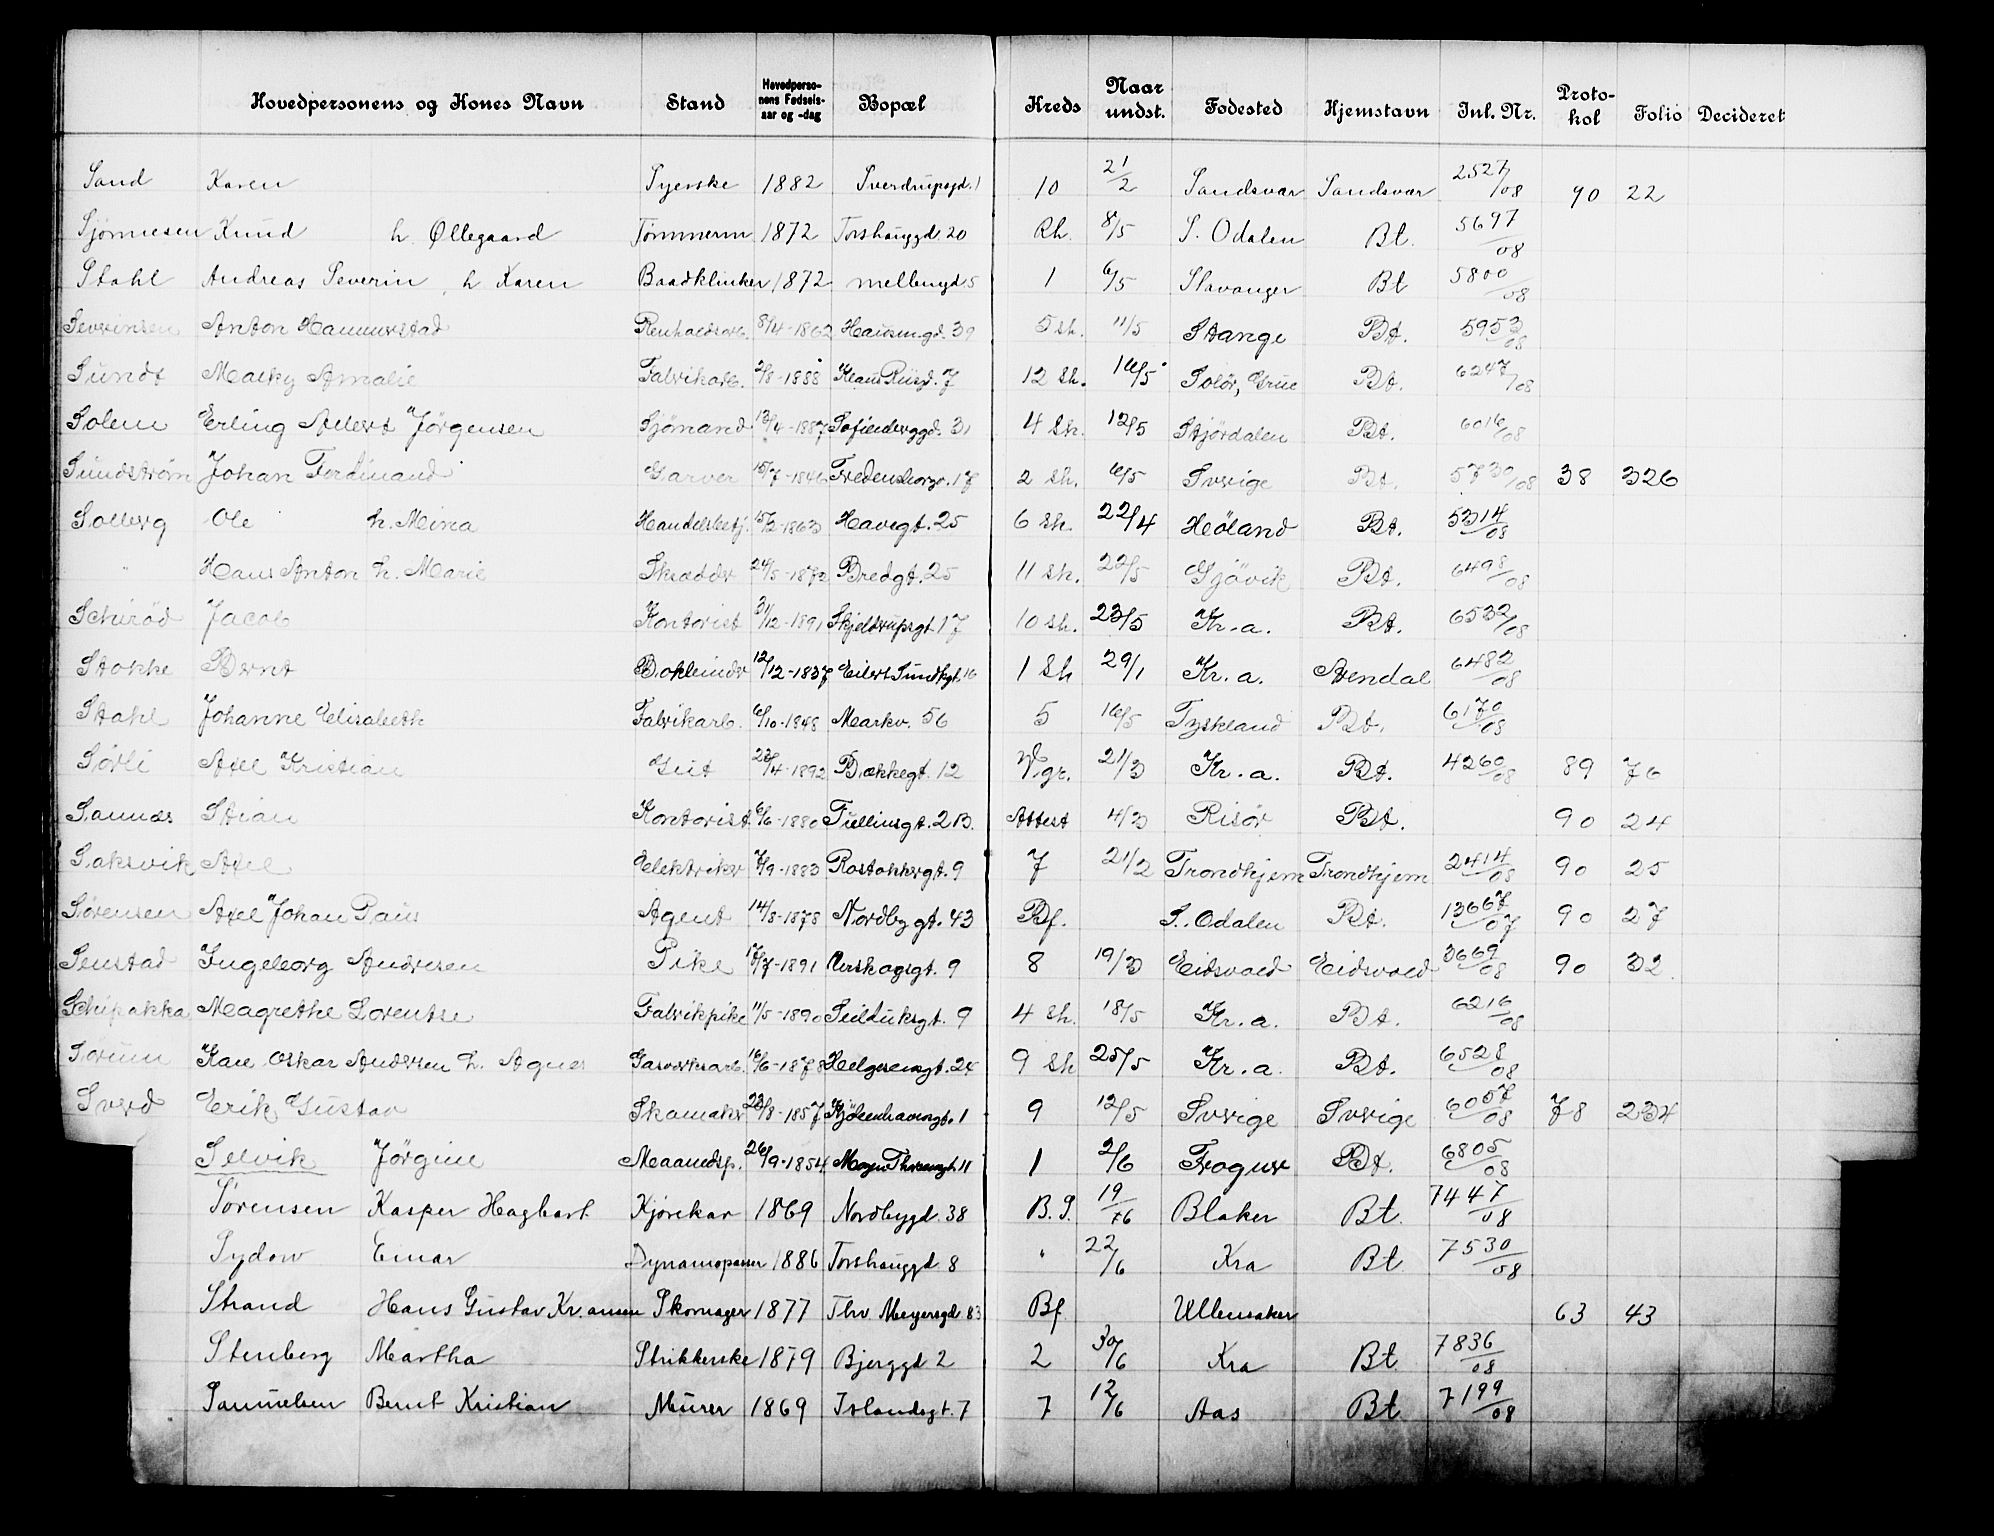 Hovedpersonens og Kones Navn Stand Hovedpersonens Fødsels-aar og -dag Bopæl Kreds Naar undst. Fødested Hjemstavn Inl. Nr. Proto-kol Folio Decideret
Sand Karen Syerske 1882 Sverdrupsgd. 1 10 21/2 Sandsvær Sandsvær 2527/08 90 22
Sjönnesen Knud h. Øllegaard Tømmerm 1872 Torshauggd. 20 Rh. 8/5 S. Odalen Bt. 5697/08
Stahl Andreas Severin, h Karen Baadklinker 1872 mellemgd 5 1 6/5 Stavanger Bt 5800/08
Severinsen Anton Hammerstad Renholdsarb. 8/4-1862 Hausmgd. 39 5 sh. 11/5 Stange Bt. 5953/08
Sundt Amalie Fabrikarb. 2/8-1888 Klaus Riisgd. 7 12 sh. 16/5 Solör, Grue Bt. 6247/08
Solem Erling Albert Jörgensen Sjömand 13/4-1887 Sofienberggd. 31 4 sh. 12/5 Stjördalen Bt. 6016/08
Sundström Johan Ferdinand Garver 15/7-1846 Fredensborgv. 17 2 sh. 6/5 Sverige Bt. 5730/08 38 326
Solberg Ole h. Mina Handelsbetj. 15/2-1863 Havegt. 25 6 sh. 22/4 Höland Bt. 5314/08
" Hans Anton h. Marie Skrædder 24/5-1872 Bredgt. 25 11 sh. 22/5 Gjövik Bt. 6498/08
Jacob Kontorist 31/12-1891 Skjeldrupsgt. 17 10 sh. 23/5 Kr.a. Bt. 6532/08
Stokke Bernt Bokbinder 12/12-1837 Eilert Sundtsgt. 16 1 sh 29/1 Kr.a. Arendal 6482/08
Stahl Johanne Elisabeth Fabrikarb. 6/10-1848 Markv. 56 5 16/5 Tyskland Bt. 6170/08
Sørli Axel Kristian Gut 23/4-1892 Bækkegt. 12 V.gr. 21/3 Kr.a. Bt. 4260/08 89 76
Sannæs Stian Kontorist 6/6-1880 Tullinsgt. 2 B. Attest 4/3 Risör Bt. 90 24
Saksvik Axel Elektriker 7/9-1883 Rostokkergt. 9 7 21/2 Trondhjem Trondhjem 2414/08 90 25
Sørensen Axel Johan Paus Agent 14/8-1878 Nordbygt. 43 Bf. S. Odalen Bt. 13667/07 90 27
Senstad Ingeborg Andresen Pike 17/7-1891 gt. 9 8 19/3 Eidsvold Eidsvold 3669/08 90 32
Schipakka Magrethe Lorentse Fabrikpike 11/5-1890 Seilduksgt. 9 4 sh. 18/5 Kr.a. Bt. 6216/08
Sørum Karl Oskar Andersen h. Agnes Gasverksarb. 16/6-1878 Helgesensgt. 24 9 sh 25/5 Kr.a. Bt. 6528/08
Sverd Erik Gustav Skomaker 23/8-1857 Kjöbenhavnsgt. 1 9 12/5 Sverige Sverige 6057/08 78 234
Selvik Jörgine Maanedsp. 26/9-1854 Magn Thranesgt. 11 1 2/6 Frogner Bt. 6805/08
Sørensen Kasper Hagbart Kjørekar 1869 Nordbygd. 38 B.S. 19/6 Blaker Bt. 7447/08
Sydow Einar Dynamopasser 1886 Torshauggd 8 " 22/6 Kra Bt 7530/08
Strand Hans Gustav Kr.ansen Skomager 1877 Thv. Meyersgd 83 Bf Ullensaker 63 43
Stenberg Martha Strikkerske 1879 Bjerggd 2 2 30/6 Kra Bt. 7836/08
Samuelsen Bernt Kristian Murer 1869 Islandsgt. 7 7 12/6 Aas Bt 7199/08